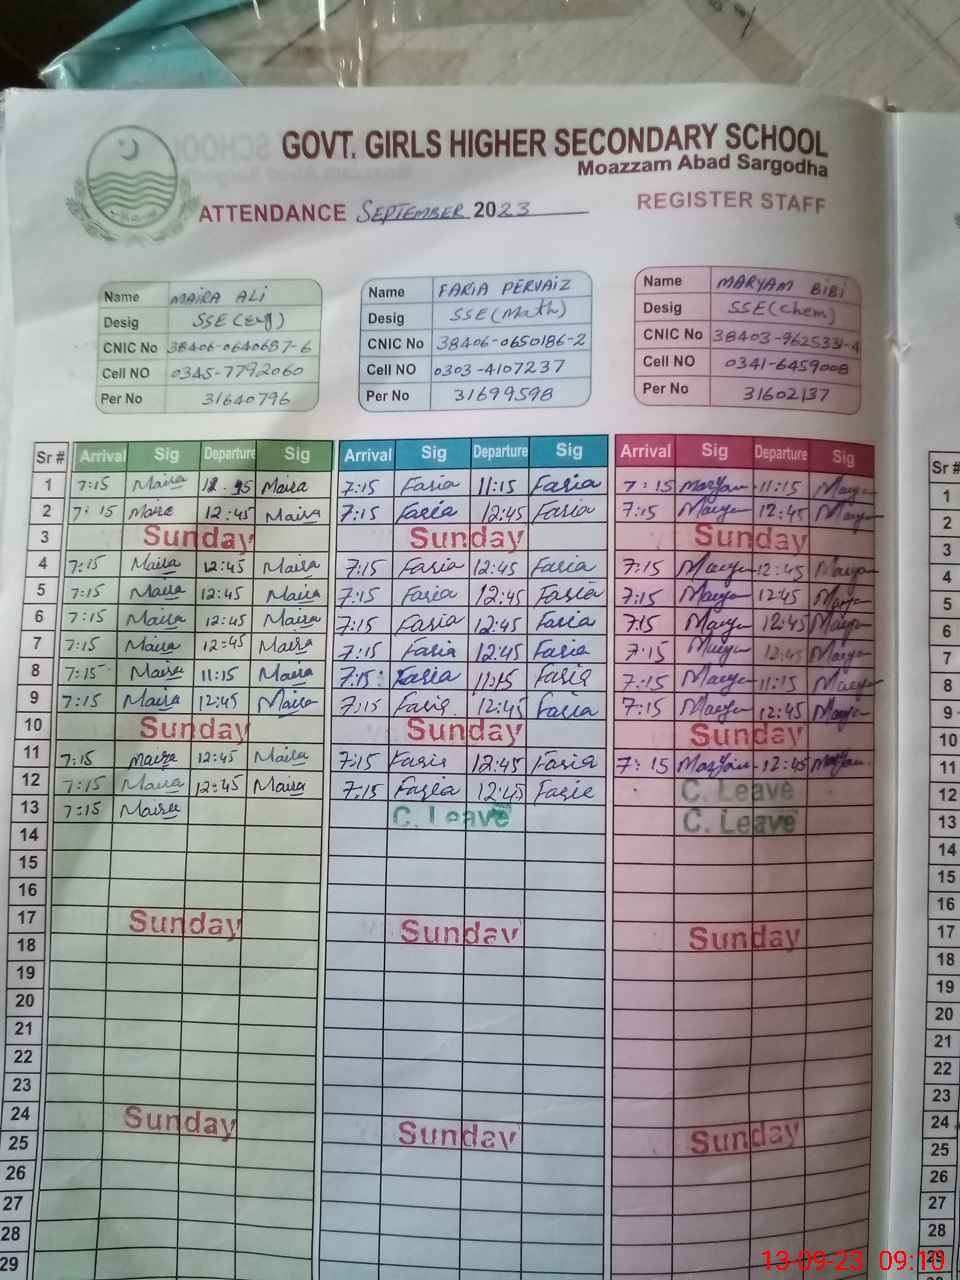 GOVT. GIRLS HIGHER SECONDARY SCHOOL
Moazzam Abad Sargodha
ATTENDANCE SEPTEMBER 2023 REGISTER STAFF
Name MAIRA ALI Name FARIA PERVAIZ Name MARYAM BIBI
Desig SSE(Eng) Desig SSE(Math) Desig SSE(Chem)
CNIC No 38406-0640687-6 CNIC No 38406-0650186-2 CNIC No 38403-9625331-4
Cell NO 0345-7792060 Cell NO 0303-4107237 Cell NO 0341-6459008
Per No 31640796 Per No 31699598 Per No 31602137
Sr # Arrival Sig Departure Sig Arrival Sig Departure Sig Arrival Sig Departure Sig Sr #
1 7:15 Maira Maira 7:15 Faria 11:15 Faria 7:15 Maryam 11:15 Maryam 1
2 7:15 Maira 12:45 Maira 7:15 Faria 12:45 Faria 7:15 Maryam 12:45 Maryam 2
3 Sunday Sunday Sunday 3
4 7:15 Maira 12:45 Maira 7:15 Faria 12:45 Faria 7:15 Maryam 12:45 Maryam 4
5 7:15 Maira 12:45 Maira 7:15 Faria 12:45 Faria 7:15 Maryam 12:45 Maryam 5
6 7:15 Maira 12:45 Maira 7:15 Faria 12:45 Faria 7:15 Maryam 12:45 Maryam 6
7 7:15 Maira 12:45 Maira 7:15 Faria 12:45 Faria 7:15 Maryam 12:45 Maryam 7
8 7:15 Maira 11:15 Maira 7:15 Faria 11:15 Faria 7:15 Maryam 11:15 Maryam 8
9 7:15 Maira 12:45 Maira 7:15 Faria 12:45 Faria 7:15 Maryam 12:45 Maryam 9
10 Sunday Sunday Sunday 10
11 7:15 Maira 12:45 Maira 7:15 Faria 12:45 Faria 7:15 Maryam 12:45 Maryam 11
12 7:15 Maira 12:45 Maira 7:15 Faria 12:45 Faria C. Leave 12
13 7:15 Maira C. Leave C. Leave 13
14 14
15 15
16 16
17 Sunday Sunday Sunday 17
18 18
19 19
20 20
21 21
22 22
23 23
24 Sunday Sunday Sunday 24
25 25
26 26
27 27
28 28
29
13-09-23 09:10